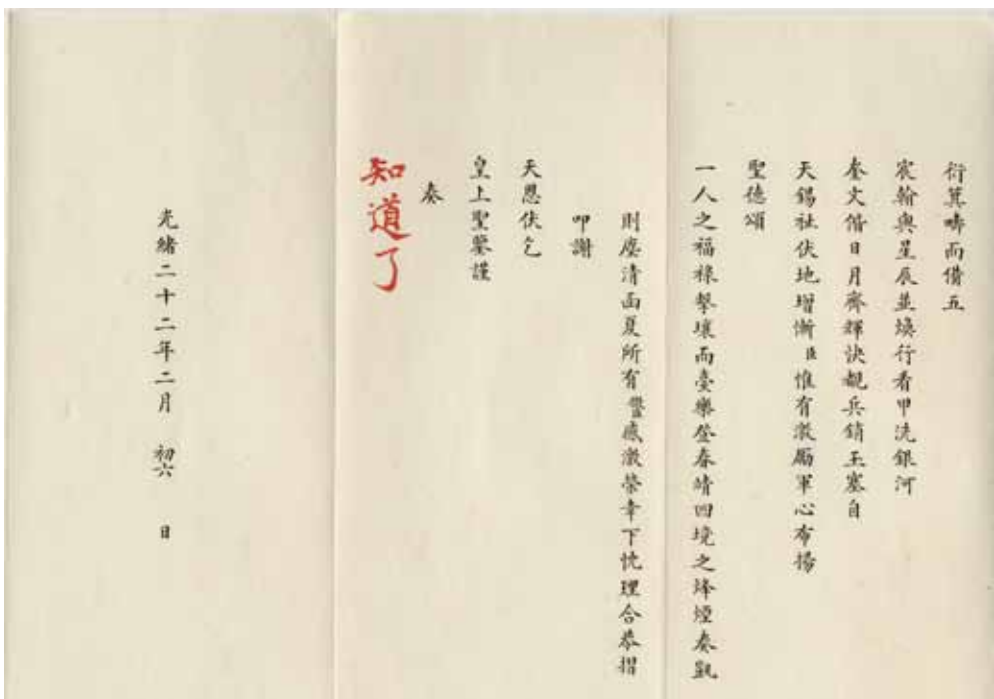 衍箕疇而備五
宸翰與星辰並煥行看甲洗銀河
奎文偕日月齊輝快覩兵銷玉塞自
天錫祉伏地增慚臣惟有激勵軍心布揚
聖德頌
一人之福祿擊壤而臺樂登春靖四境之烽煙奏凱
則塵清函夏所有感激榮幸下忱理合恭摺
叩謝
天恩伏乞
皇上聖鑒謹
奏
知道了
光緒二十二年二月 初六 日